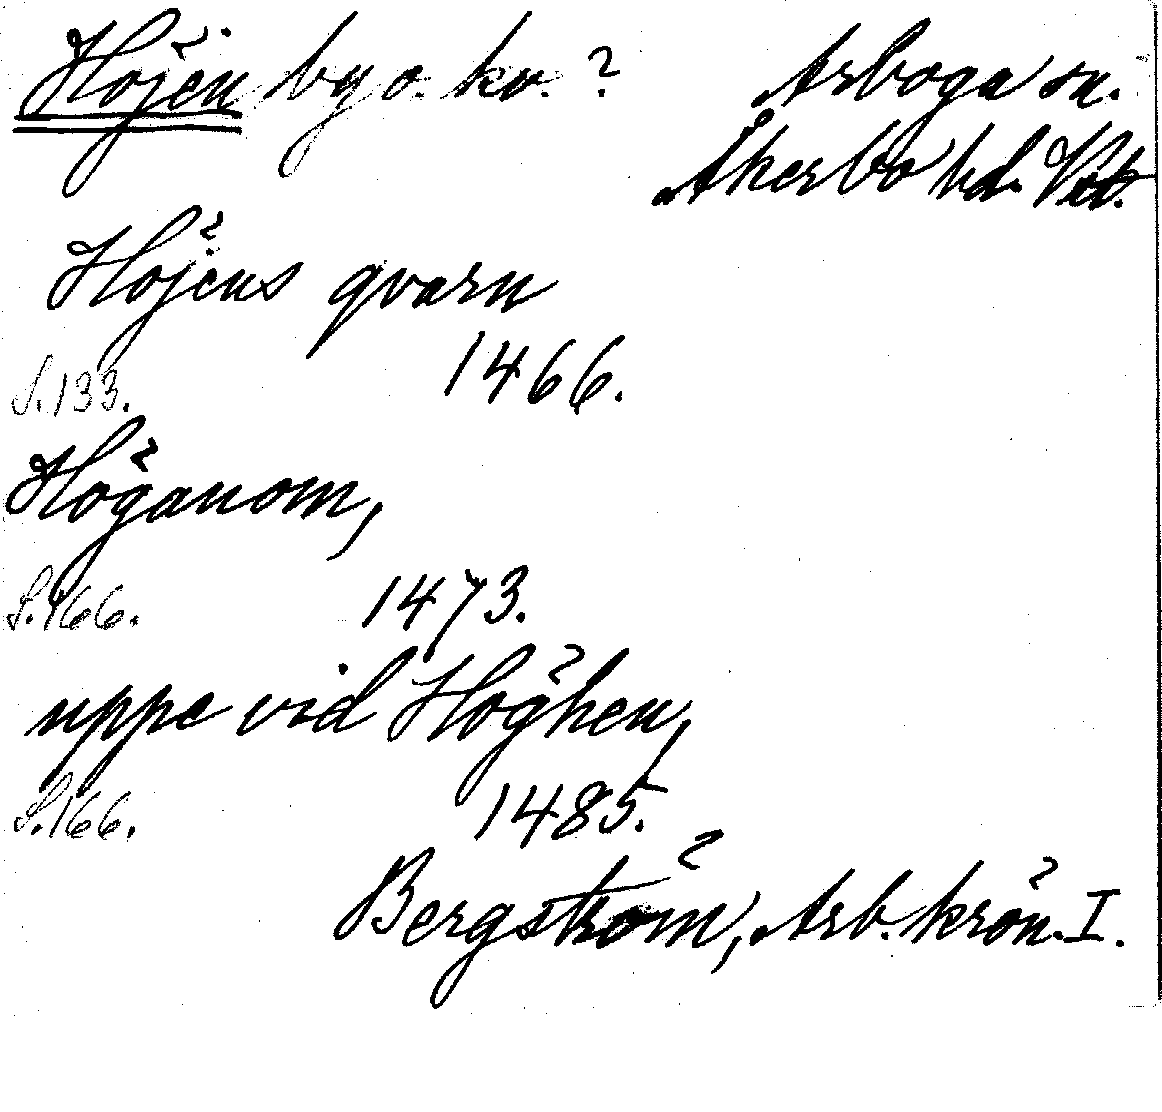 Höjen by o. kv. ? Arboga sn.
Åkerbo hd. Vstm.
Höjens qvarn
S. 133. 1466.
Höganom,
S. 166. 1473.
uppe vid Höghen,
S. 166. 1485.
Bergström, Arb. krön. I.